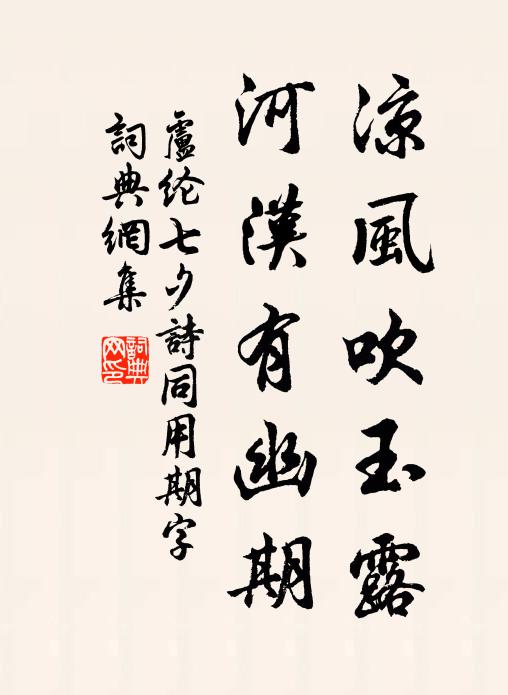 凉風吹玉露
河漢有幽期
盧纶七夕詩同用期字
詞典網集
詞典網印